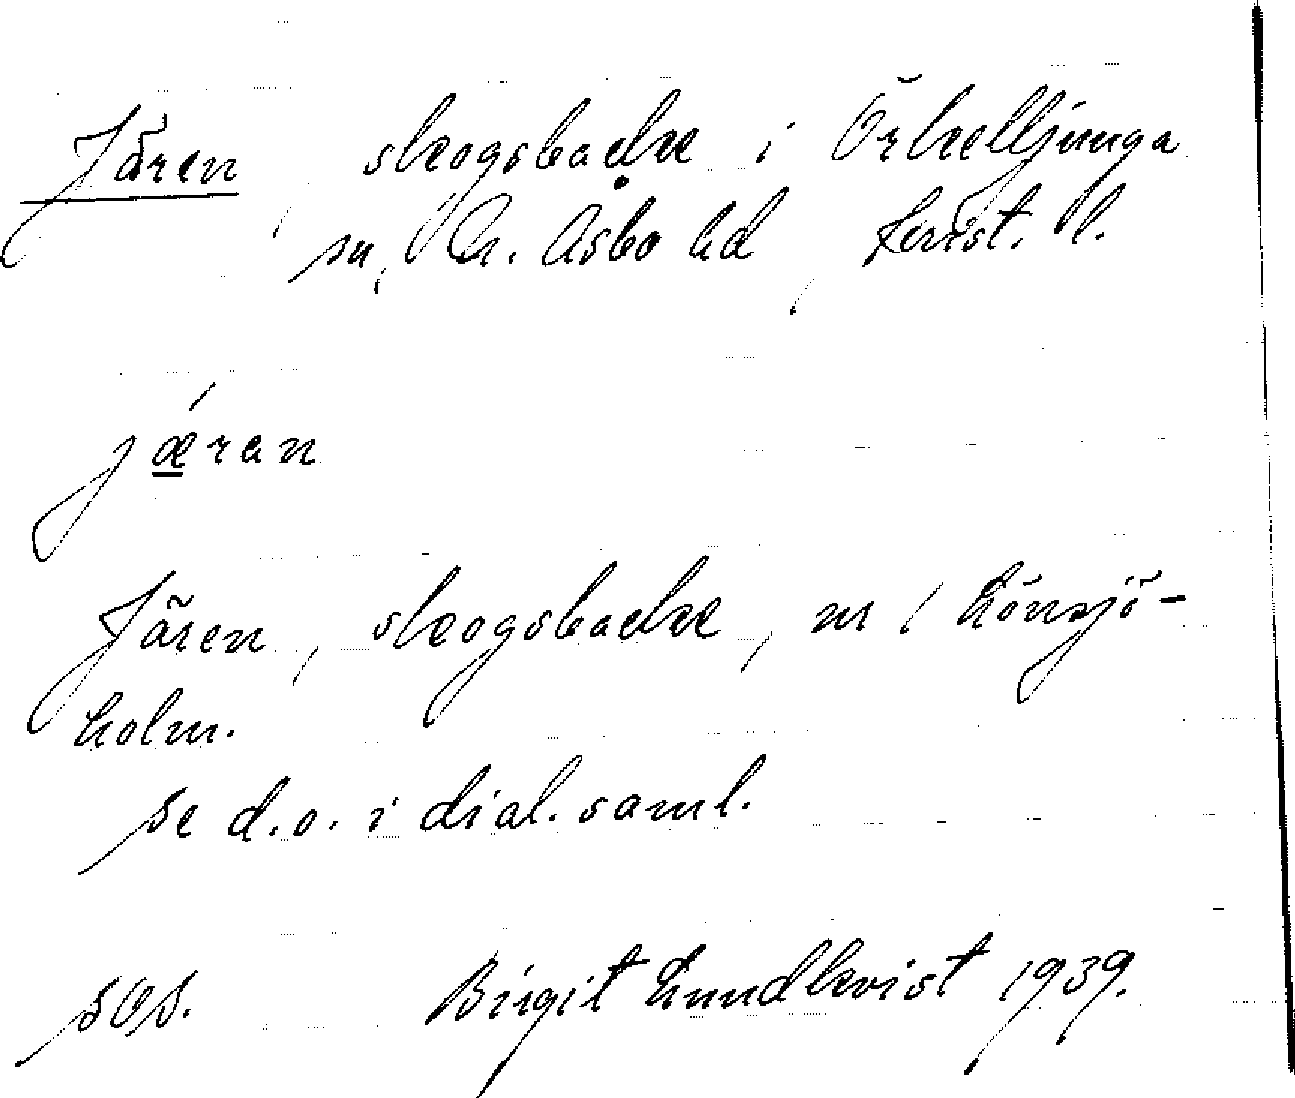 Jären, skogsbacke i Örkelljunga
sn, N. Åsbo hd, Krist. l.
jǽran
Jären, skogsbacke, nr / Lönsjö-
holm.
se d.o. i dial. saml.
Birgit Lundkvist 1939.